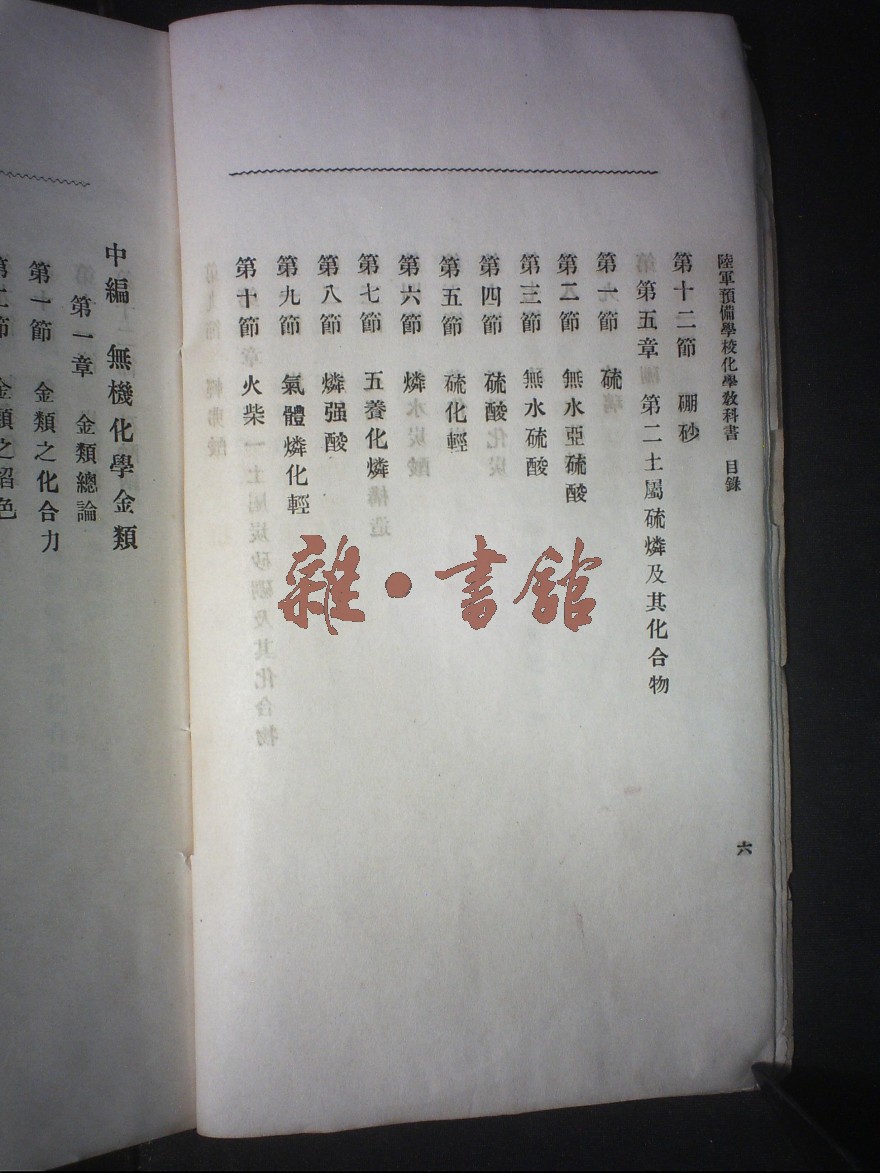 陸軍預備學校化學敎科書 目錄
六
第十二節 硼砂
第五章 第二土屬硫燐及其化合物
第一節 硫
第二節 無水亞硫酸
第三節 無水硫酸
第四節 硫酸
第五節 硫化輕
第六節 燐
第七節 五養化燐
第八節 燐强酸
第九節 氣體燐化輕
第十節 火柴
中編 無機化學金類
第一章 金類總論
第一節 金類之化合力
節 金類之
雜·書館